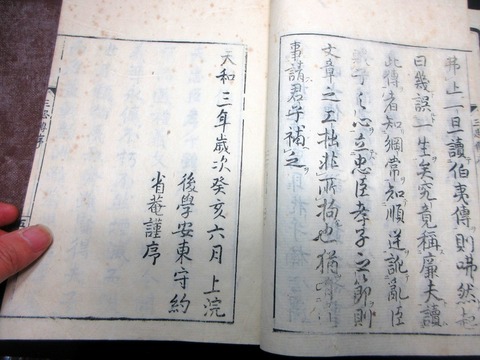 弗上一旦讀伯夷傳則咈然起
曰幾誤一生矣究竟稱廉夫讀
此傳者知綱常知順逆訛亂臣
賊子之心立忠臣孝子之節則
文章之工拙非所拘也猶
事請君子補之
天和三年歲次癸亥六月上浣
後學安東守約
省菴謹序